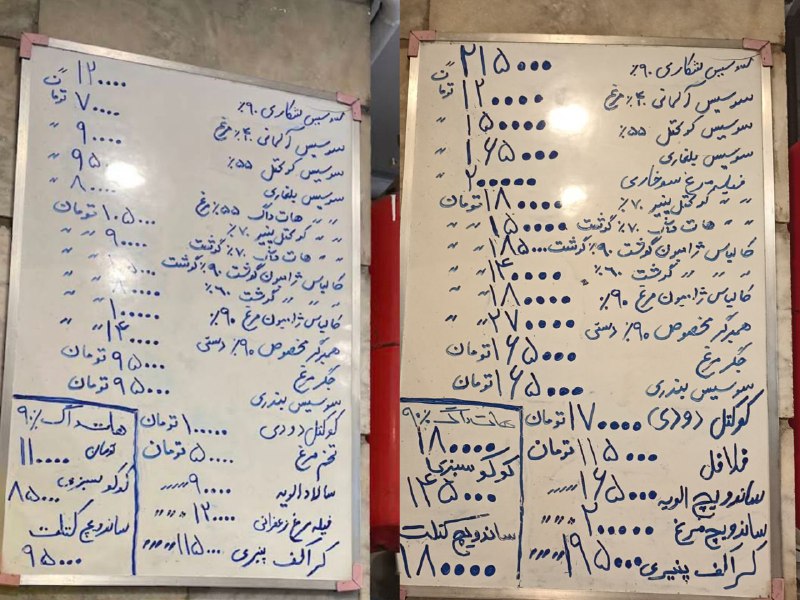 سوسیس شکاری ۹۰٪ ۱۲۰۰۰۰ ت
سوسیس آلمانی ۴۰٪ مرغ ۷۰۰۰۰ تومان
سوسیس کوکتل ۵۵٪ ۹۰۰۰۰ 〃
سوسیس بلغاری ۹۵۰۰۰ 〃
〃 〃 هات داگ ۵۵٪ مرغ ۸۰۰۰۰ 〃
〃 〃 کوکتل پنیر ۷۰٪ ۱۰۵۰۰۰ تومان
〃 〃 هات داگ ۷۰٪ گوشت ۹۰۰۰۰ 〃 〃
کالباس ژامبون گوشت ۹۰٪ گوشت
〃 〃 〃 گوشت ۶۰٪ ۸۰۰۰۰ 〃 〃
کالباس ژامبون مرغ ۹۰٪ ۱۰۰۰۰۰ 〃
همبرگر مخصوص ۹۰٪ دستی ۱۴۰۰۰۰ 〃 〃
جگر مرغ ۹۵۰۰۰ تومان
سوسیس بندری ۹۵۰۰۰ تومان
کوکتل دودی ۱۰۰۰۰۰ تومان
تخم مرغ ۵۰۰۰۰ تومان
سالاد الویه ۹۰۰۰۰ 〃〃〃
فیله مرغ زعفرانی ۱۲۰۰۰۰ 〃〃〃
کراکف پنیری ۱۱۵۰۰۰ 〃〃〃
هات داگ ۹۰٪
۱۱۰۰۰۰ تومان
کوکو سبزی
۸۵۰۰۰
ساندویچ کتلت
۹۵۰۰۰
سوسیس شکاری ۹۰٪ ۲۱۵۰۰۰ ت
سوسیس آلمانی ۴۰٪ مرغ ۱۲۰۰۰۰ تومان
سوسیس کوکتل ۵۵٪ ۱۵۰۰۰۰ 〃
سوسیس بلغاری ۱۶۵۰۰۰ 〃
فیله مرغ سوخاری ۲۰۰۰۰۰ 〃
〃 〃 کوکتل پنیر ۷۰٪ ۱۸۰۰۰۰ تومان
〃 〃 هات داگ ۷۰٪ گوشت ۱۵۰۰۰۰ 〃 〃
کالباس ژامبون گوشت ۹۰٪ گوشت ۱۸۵۰۰۰ 〃 〃
〃 〃 〃 گوشت ۶۰٪ ۱۴۰۰۰۰ 〃 〃
کالباس ژامبون مرغ ۹۰٪ ۱۸۰۰۰۰ 〃 〃
همبرگر مخصوص ۹۰٪ دستی ۲۷۰۰۰۰ 〃 〃
جگر مرغ ۱۶۵۰۰۰ تومان
سوسیس بندری ۱۶۵۰۰۰ تومان
کوکتل دودی ۱۷۰۰۰۰ تومان
فلافل ۱۱۵۰۰۰ تومان
ساندویچ الویه ۱۶۵۰۰۰ 〃〃〃
ساندویچ مرغ ۲۰۰۰۰۰ 〃〃〃
کراکف پنیری ۱۹۵۰۰۰ 〃〃〃
هات داگ ۹۰٪
۱۸۰۰۰۰
کوکو سبزی
۱۴۵۰۰۰
ساندویچ کتلت
۱۸۰۰۰۰